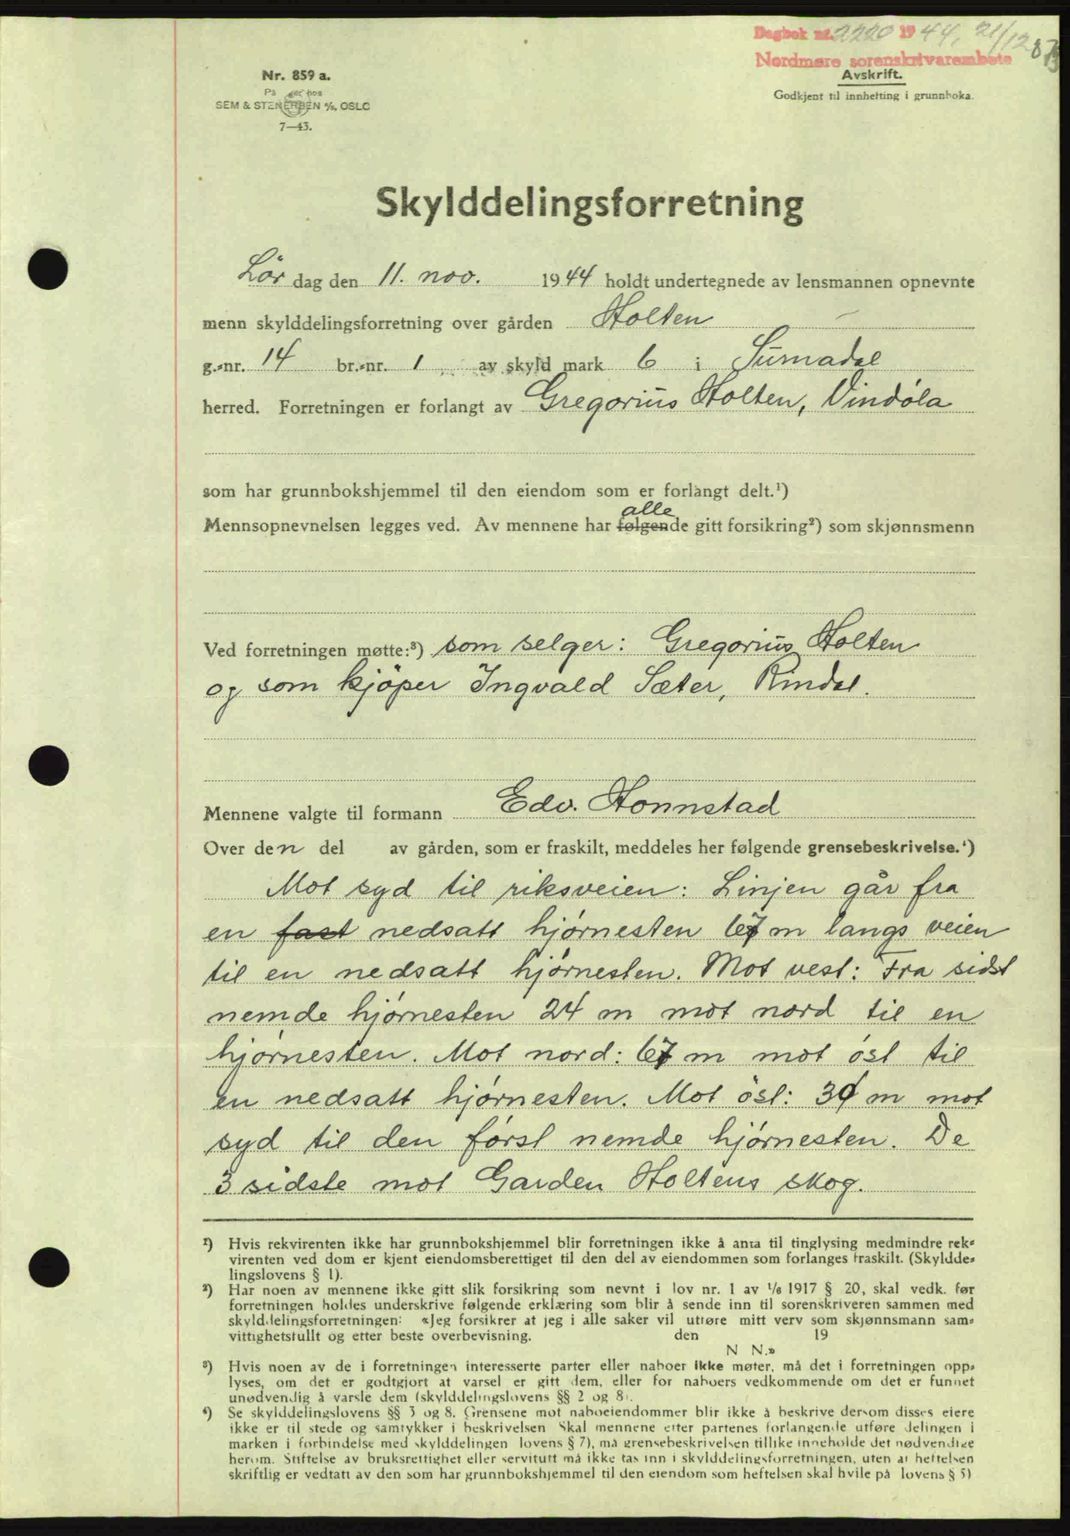 Dagbok nr. 2220 19 44, 21/12
Nordmøre sorenskrivarembete
Avskrift.
Godkjent til innhefting i grunnboka.
Nr. 859 a.
SEM & STENERSEN A/S, OSLO
7—43.
Skylddelingsforretning
Lör dag den 11. nov. 1944 holdt undertegnede av lensmannen opnevnte
menn skylddelingsforretning over gården Holten
g.-nr. 14 br.-nr. 1 av skyld mark 6 i Surnadal
herred. Forretningen er forlangt av Gregorius Holten, Vindøla
som har grunnbokshjemmel til den eiendom som er forlangt delt.¹)
alle
Mennsopnevnelsen legges ved. Av mennene har følgende gitt forsikring²) som skjønnsmenn
Ved forretningen møtte:³) som selger: Gregorius Holten
og som kjöper Ingvald Sæter, Rindal.
Mennene valgte til formann Edv. Honnstad
Over den del av gården, som er fraskilt, meddeles her følgende grensebeskrivelse.⁴)
Mot syd til riksveien: Linjen går fra
en fast nedsatt hjørnesten 67 m langs veien
til en nedsatt hjørnesten. Mot vest: Fra sidst
nemde hjørnesten 24 m mot nord til en
hjørnesten. Mot nord: 67 m mot öst til
en nedsatt hjørnesten. Mot öst: 30 m mot
syd til den först nemde hjørnesten. De
3 sidste mot Garden Holtens skog.
¹) Hvis rekvirenten ikke har grunnbokshjemmel blir forretningen ikke å anta til tinglysing medmindre rek-
virenten ved dom er kjent eiendomsberettiget til den del av eiendommen som forlanges fraskilt. (Skyldde-
lingslovens § 1).
²) Har noen av mennene ikke gitt slik forsikring som nevnt i lov nr. 1 av 1/6 1917 § 20, skal vedk. før
forretningen holdes underskrive følgende erklæring som blir å sende inn til sorenskriveren sammen med
skylddelingsforretningen: «Jeg forsikrer at jeg i alle saker vil utføre mitt verv som skjønnsmann sam-
vittighetsfullt og etter beste overbevisning. den 19
N N.»
³) Hvis noen av de i forretningen interesserte parter eller naboer ikke møter, må det i forretningen opp-
lyses, om det er godtgjort at varsel er gitt dem, eller for naboers vedkommende om det er funnet
unødvendig å varsle dem (skylddelingslovens §§ 2 og 8).
⁴) Se skylddelingslovens §§ 3 og 8. Grensene mot naboeiendommer blir ikke å beskrive dersom disses eiere
ikke er til stede og samtykker i beskrivelsen Skal mennene etter partenes forlangende utføre delingen i
marken i forbindelse med skylddelingen lovens § 7), må grensebeskrivelsen tillike inneholde det nødvendige
herom. Stiftelse av bruksrettighet eller servitutt må ikke tas inn i skylddelingsforretningen, uten at heftelsen
skriftlig er vedtatt av den som har grunnbokshjemmel til den eiendom som heftelsen skal hvile på lovens § 5)